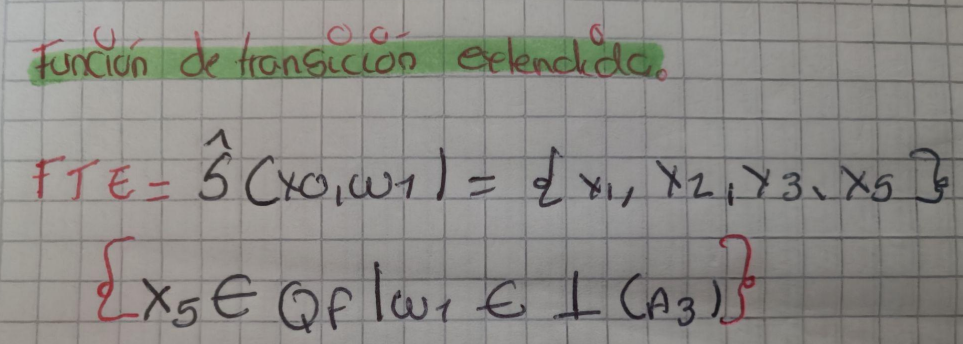 Función de transición extendida.
FTE = Ŝ (x0, w1) = { x1, x2, x3, x5 }
{ x5 ∈ Qf | w1 ∈ ⊥ (A3) }